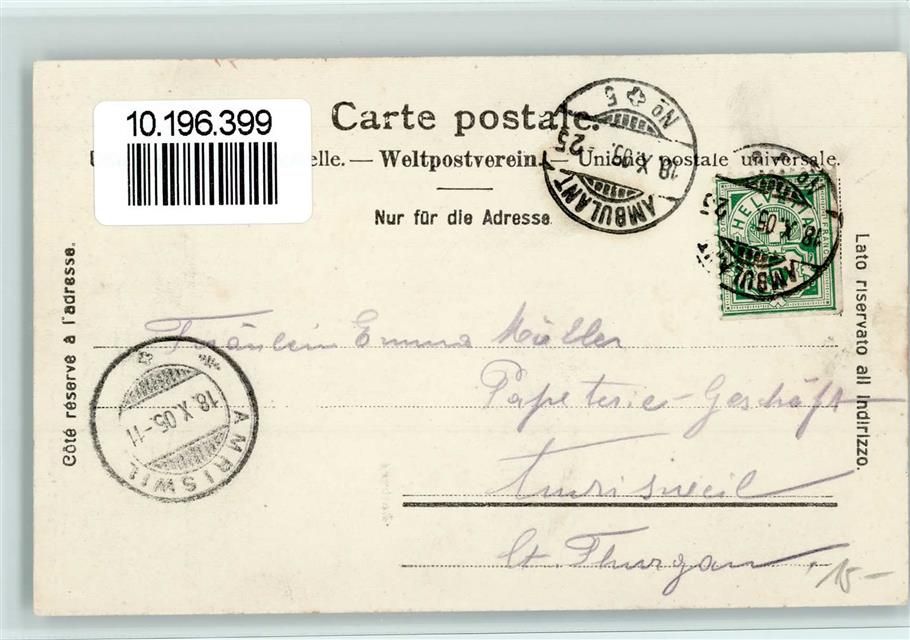 10.196.399
Carte postale.
elle. — Weltpostverein. — Unione postale universale.
Nur für die Adresse
AMBULANT No 5
18 X 05
25
AMBULANT No
18 X 05
25
HELVETIA
Côté réservé à l'adresse.
Lato riservato all indirizzo.
Fräulein Emma Müller
Papeterie-Geschäft
Amrisweil
Ct. Thurgau.
AMRISWIL
18.X.05-11
15-